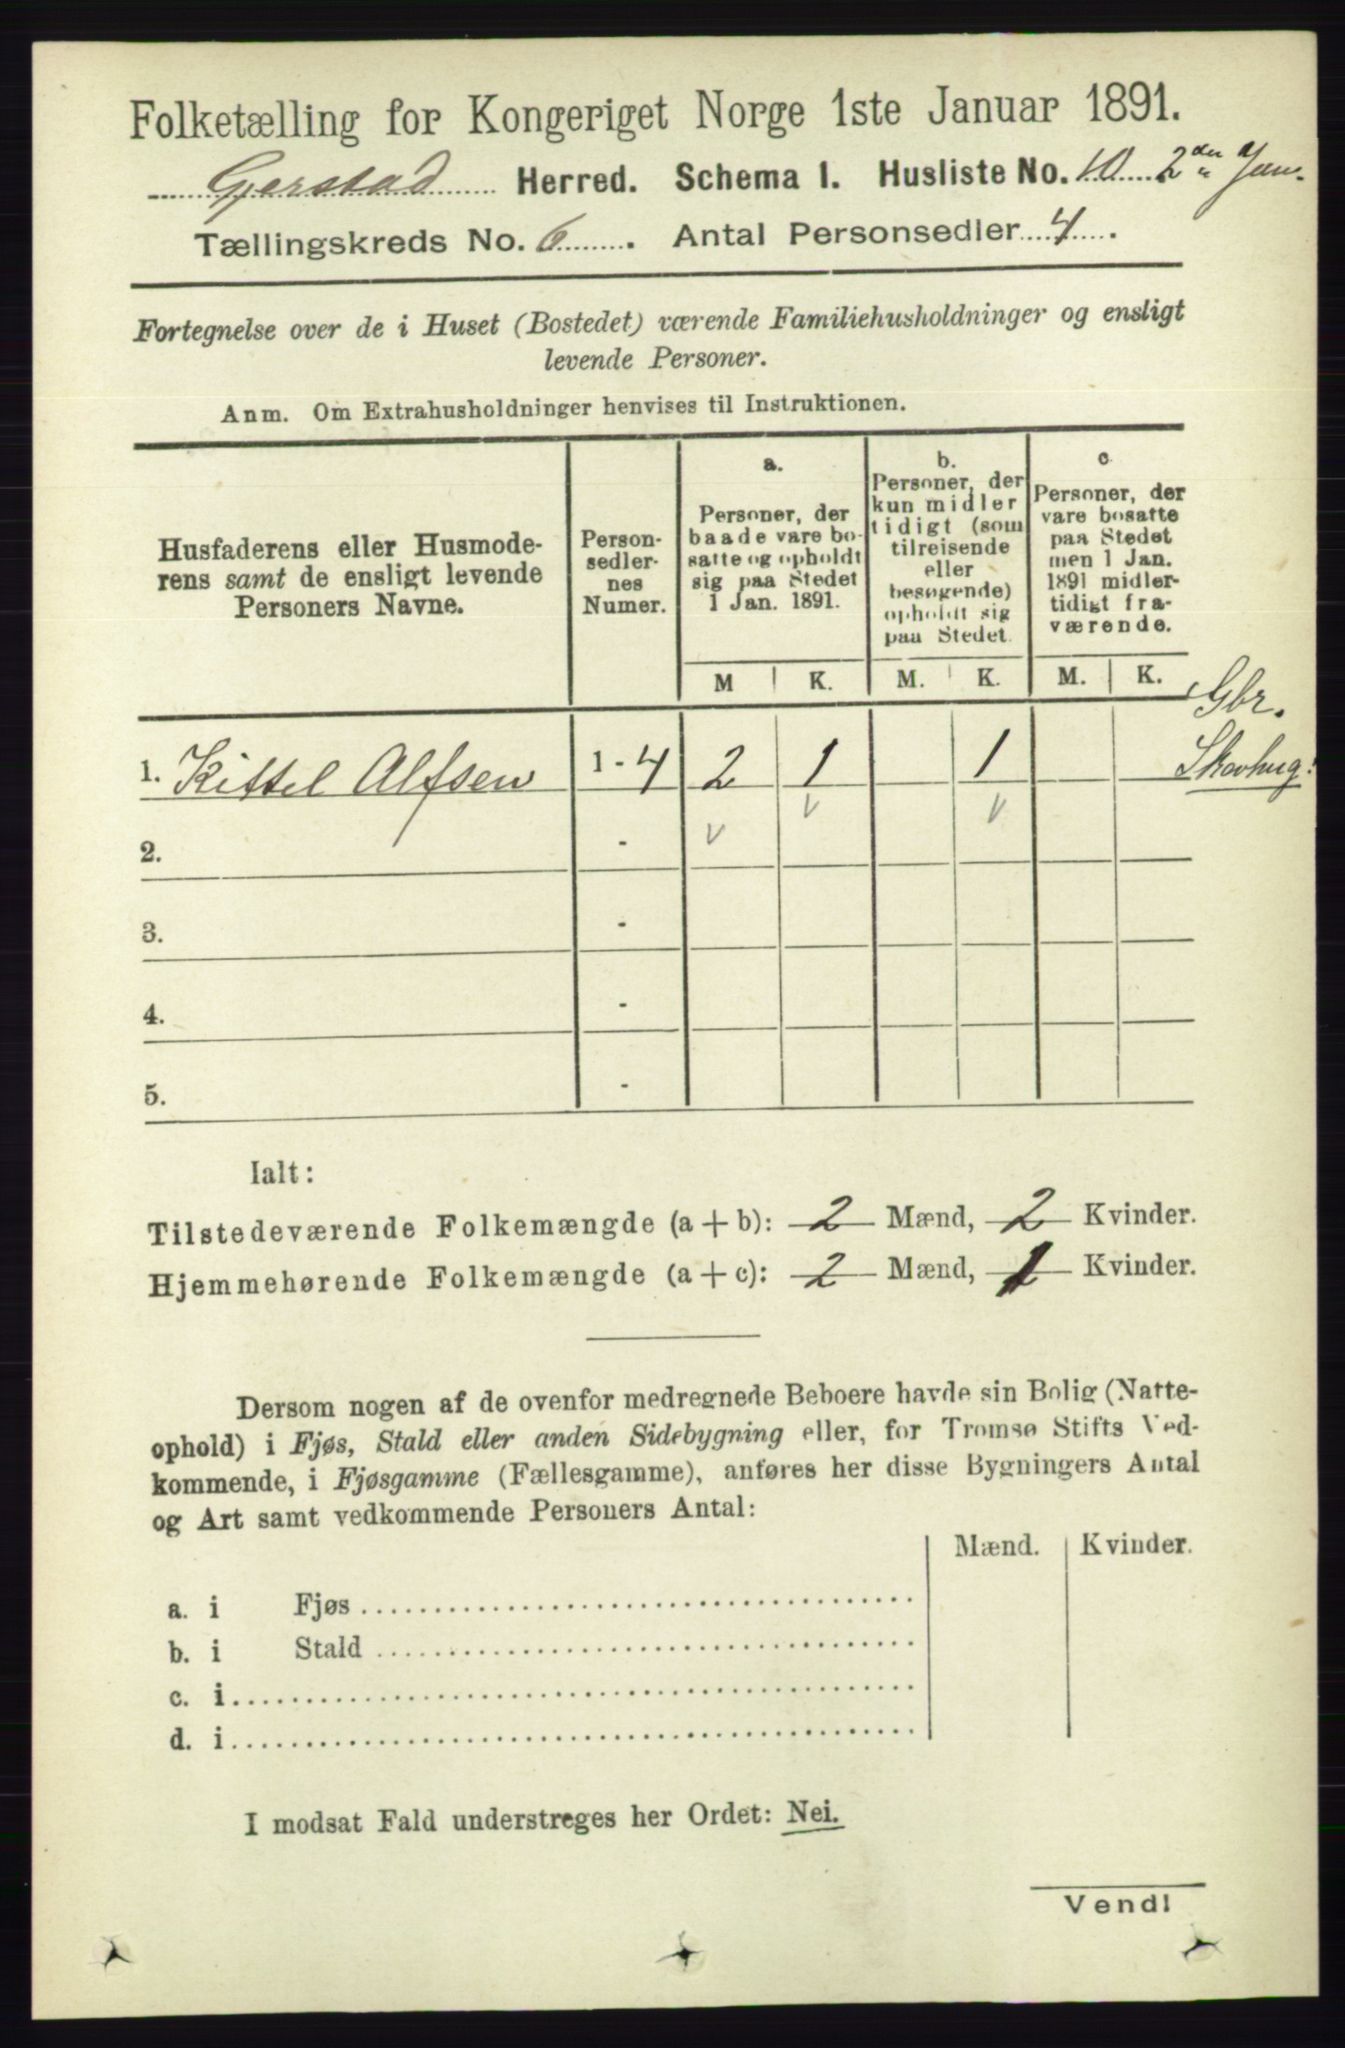 Folketælling for Kongeriget Norge 1ste Januar 1891.
Gjerstad Herred. Schema 1. Husliste No. 10 2den Jan.
Tællingskreds No. 6. Antal Personsedler 4.
Fortegnelse over de i Huset (Bostedet) værende Familiehusholdninger og ensligt
levende Personer.
Anm. Om Extrahusholdninger henvises til Instruktionen.
Husfaderens eller Husmode-
rens samt de ensligt levende
Personers Navne.
Person-
sedler-
nes
Numer.
a.
Personer, der
baade vare bo-
satte og opholdt
sig paa Stedet
1 Jan. 1891.
b.
Personer, der
kun midler
tidigt (som
tilreisende
eller
besøgende)
opholdt sig
paa Stedet.
c
Personer, der
vare bosatte
paa Stedet
men 1 Jan.
1891 midler-
tidigt fra-
værende.
M K. M. K. M. K.
Gbr.
1. Kittel Alfsen 1 - 4 2 1 1
2. -
3. -
4. -
5. -
Ialt:
Tilstedeværende Folkemængde (a + b): 2 Mænd, 2 Kvinder.
Hjemmehørende Folkemængde (a + c): 2 Mænd, 1 Kvinder.
Dersom nogen af de ovenfor medregnede Beboere havde sin Bolig (Natte-
ophold) i Fjøs, Stald eller anden Sidebygning eller, for Tromsø Stifts Ved-
kommende, i Fjøsgamme (Fællesgamme), anføres her disse Bygningers Antal
og Art samt vedkommende Personers Antal:
Mænd. Kvinder.
a. i Fjøs
b. i Stald
c. i
d. i
I modsat Fald understreges her Ordet: Nei.
Vendl